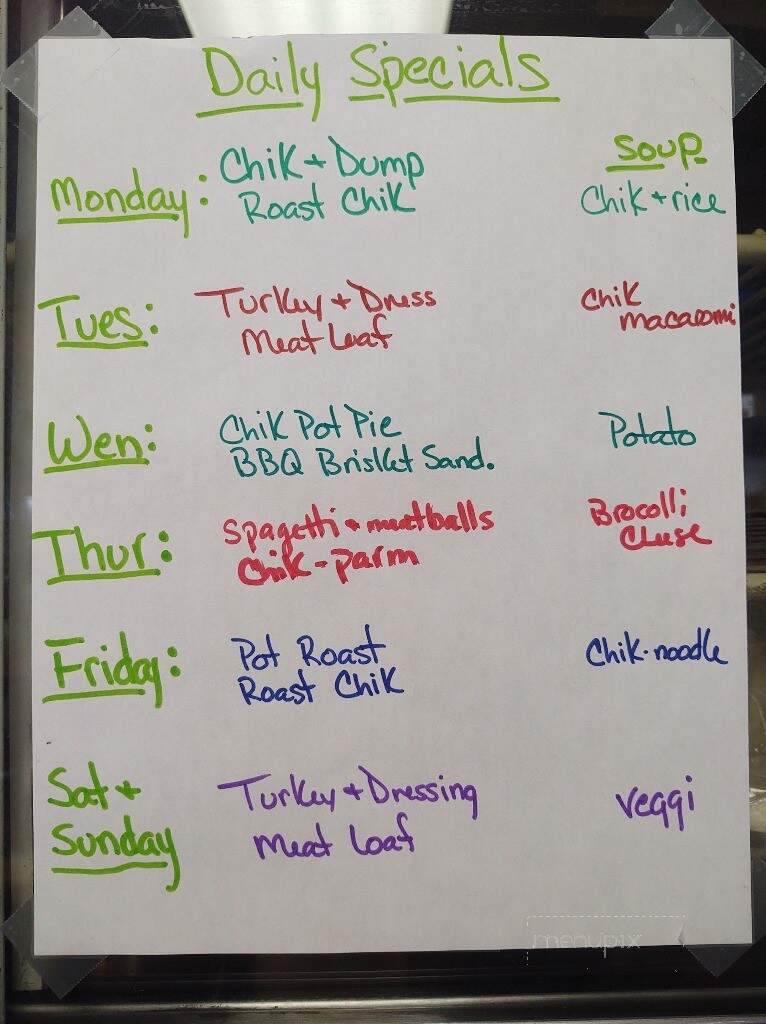 Daily Specials
Soup.
Monday: Chik + Dump
Roast Chik
Chik + rice
Tues: Turkey + Dress
Meat Loaf
Chik
macaroni
Wen: Chik Pot Pie
BBQ Brisket Sand.
Potato
Thur: Spagetti + meatballs
Chik - parm
Brocolli
Cheese
Friday: Pot Roast
Roast Chik
Chik - noodle
Sat +
Sunday
Turkey + Dressing
Meat Loaf
Veggi
menupix